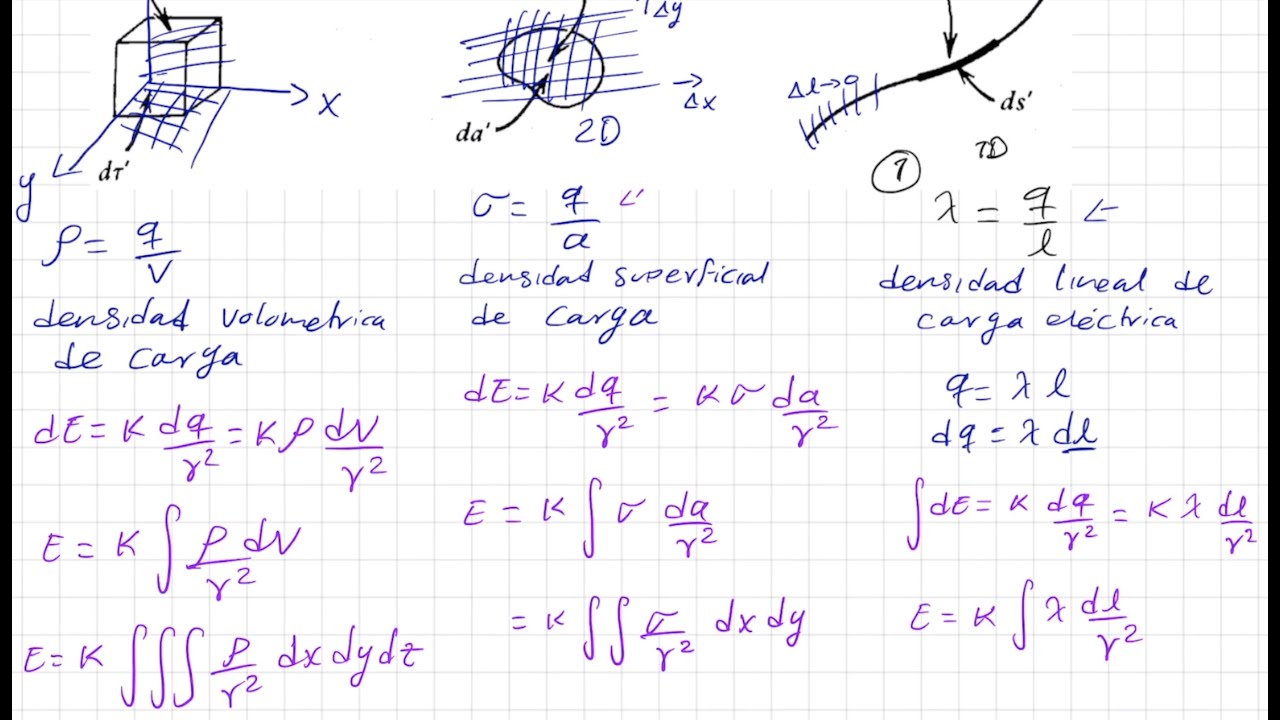 x
y
dτ'
Δy
Δx
da'
2D
Δl→q
ds'
1D
1
ρ = q/V
densidad volometrica
de carga
dE = K dq/r² = K ρ dV/r²
E = K ∫ ρ dV/r²
E = K ∫∫∫ ρ/r² dx dy dz
σ = q/a
densidad superficial
de carga
dE = K dq/r² = K σ da/r²
E = K ∫ σ da/r²
= K ∫∫ σ/r² dx dy
λ = q/l
densidad lineal de
carga eléctrica
q = λ l
dq = λ dl
∫ dE = K dq/r² = K λ dl/r²
E = K ∫ λ dl/r²